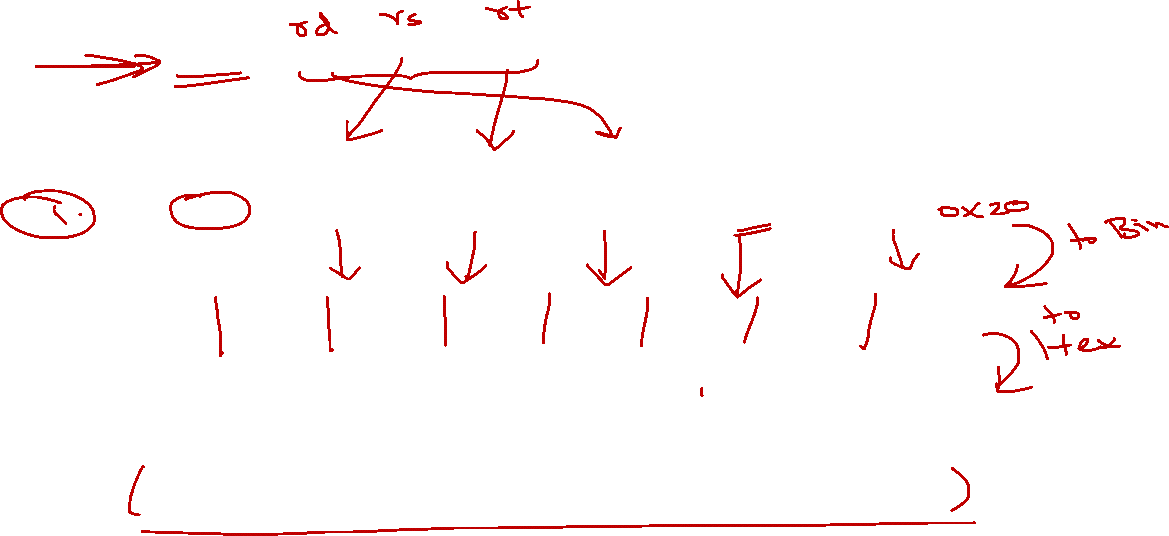 rd rs rt
0x20
to Bin
to
Hex